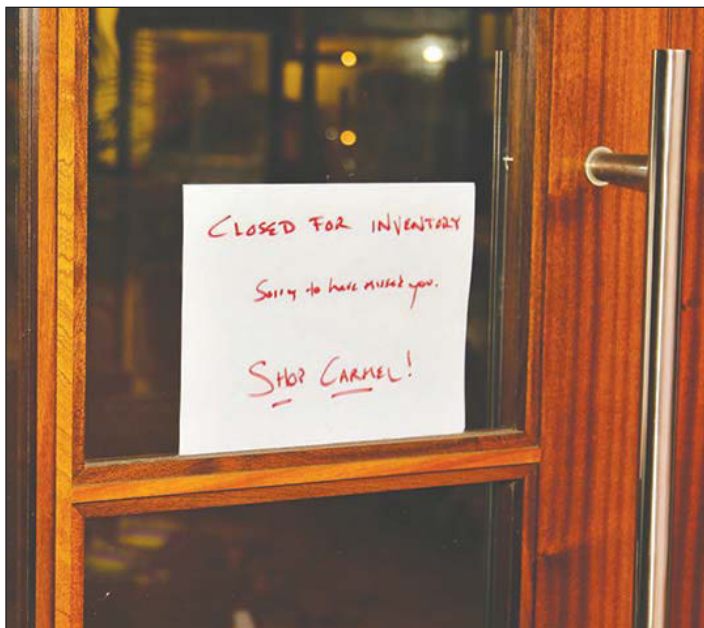 CLOSED FOR INVENTORY
Sorry to have missed you.
SHOP CARMEL!